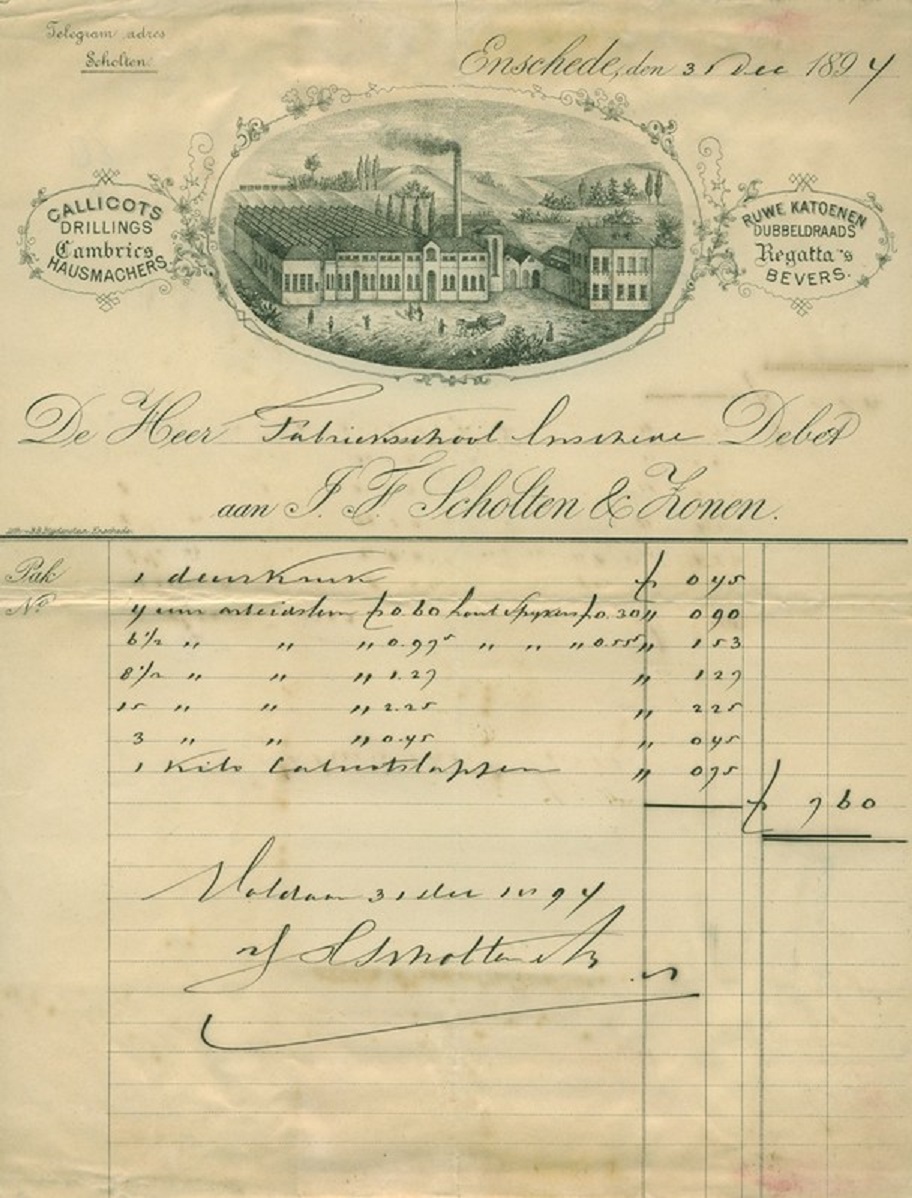 Telegram adres
Scholten
Enschede, den 31 Dec 1894
CALLICOTS
DRILLINGS
Cambrics
HAUSMACHERS
RUWE KATOENEN
DUBBELDRAADS
Regatta's
BEVERS.
De Heer Fabrieksschool Enschede Debet
aan J. F. Scholten & Zonen.
Pak 1 deurkruk f 0 45
No 4 uur arbeidsloon f 0.60 hout Spijkers f 0.30 " 0 90
6 1/2 " " " 0.97⁵ " " " 0.55⁵ " 1 53
8 1/2 " " " 1.27 " 1 27
15 " " " 2.25 " 2 25
3 " " " 0.45 " 0 45
1 Kilo " 0 75
f 7 60
Voldaan 31 dec 1894